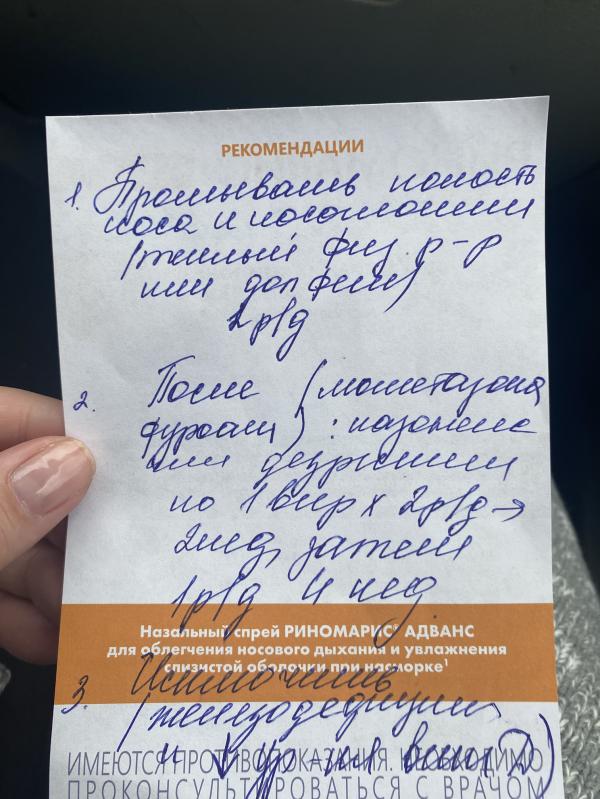 РЕКОМЕНДАЦИИ
1. Промывать полость
носа и носоглотки
(теплый физ. р-р
или долфин)
2р/д
2. После (мометазона
фуроат) : назонекс
или дезринит
по 1 впр х 2р/д →
2нед, затем
1р/д 4 нед
Назальный спрей РИНОМАРИС® АДВАНС
для облегчения носового дыхания и увлажнения
слизистой оболочки при насморке¹
3. Исключить
(железодефицит
и ↓ ур-ня вит Д)
ИМЕЮТСЯ ПРОТИВОПОКАЗАНИЯ. НЕОБХОДИМО
ПРОКОНСУЛЬТИРОВАТЬСЯ С ВРАЧОМ